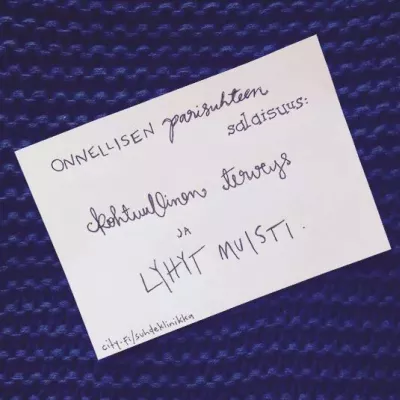 ONNELLISEN parisuhteen
salaisuus:
kohtuullinen terveys
JA
LYHYT MUISTI.
city.fi/suhdeklinikka